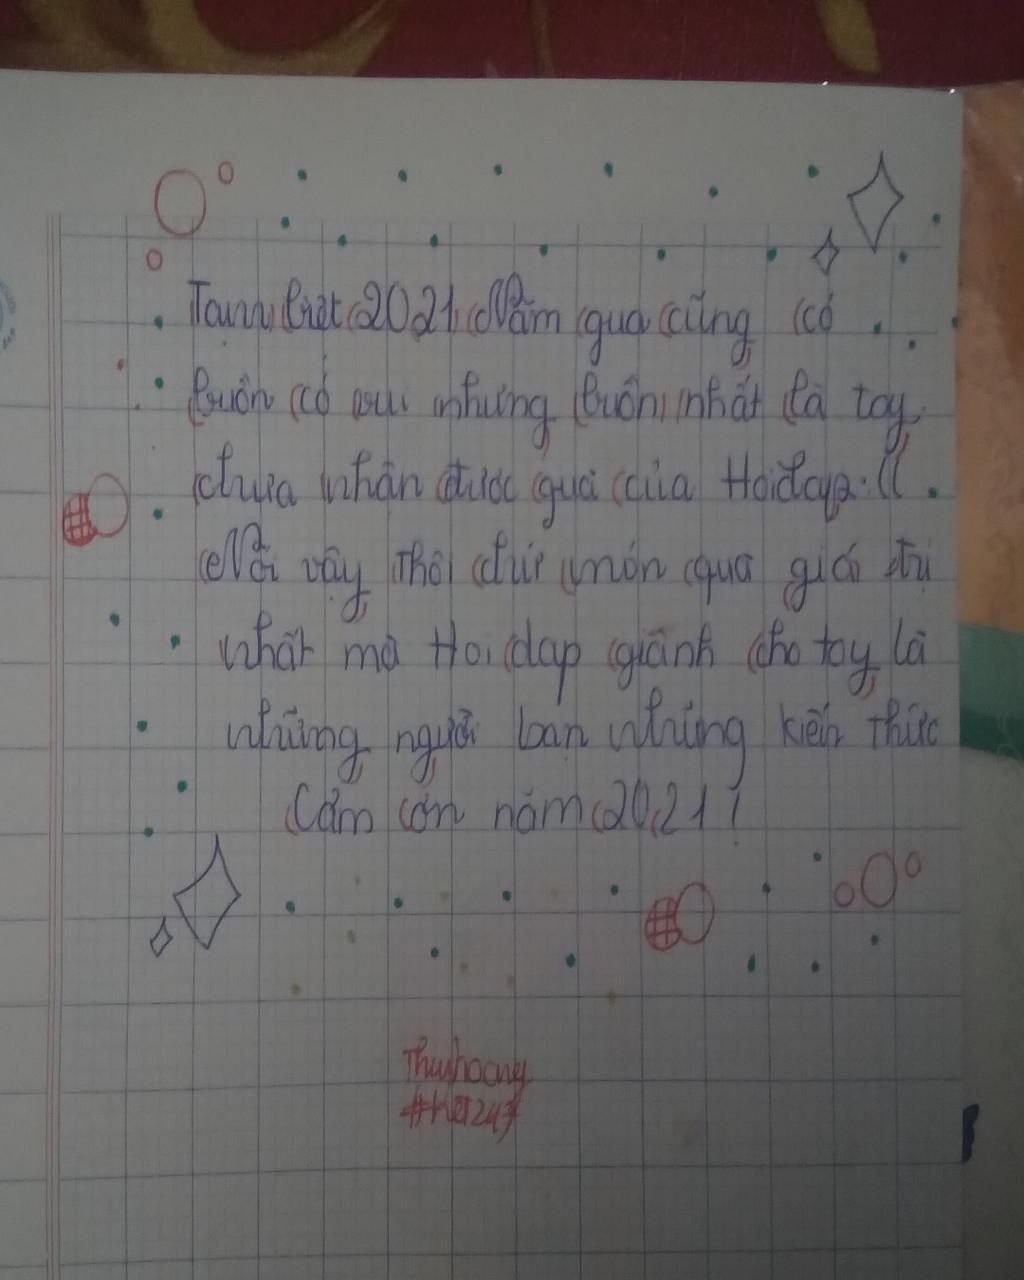 Tạm biệt 2021. Năm qua cũng có
buồn có vui nhưng buồn nhất là toy
chưa nhận được quà của Hoidap :((
Nói vậy thôi chứ món quà giá trị
nhất mà Hoidap giành cho toy là
những người bạn những kiến thức
Cảm ơn năm 2021!
Thuyhoang